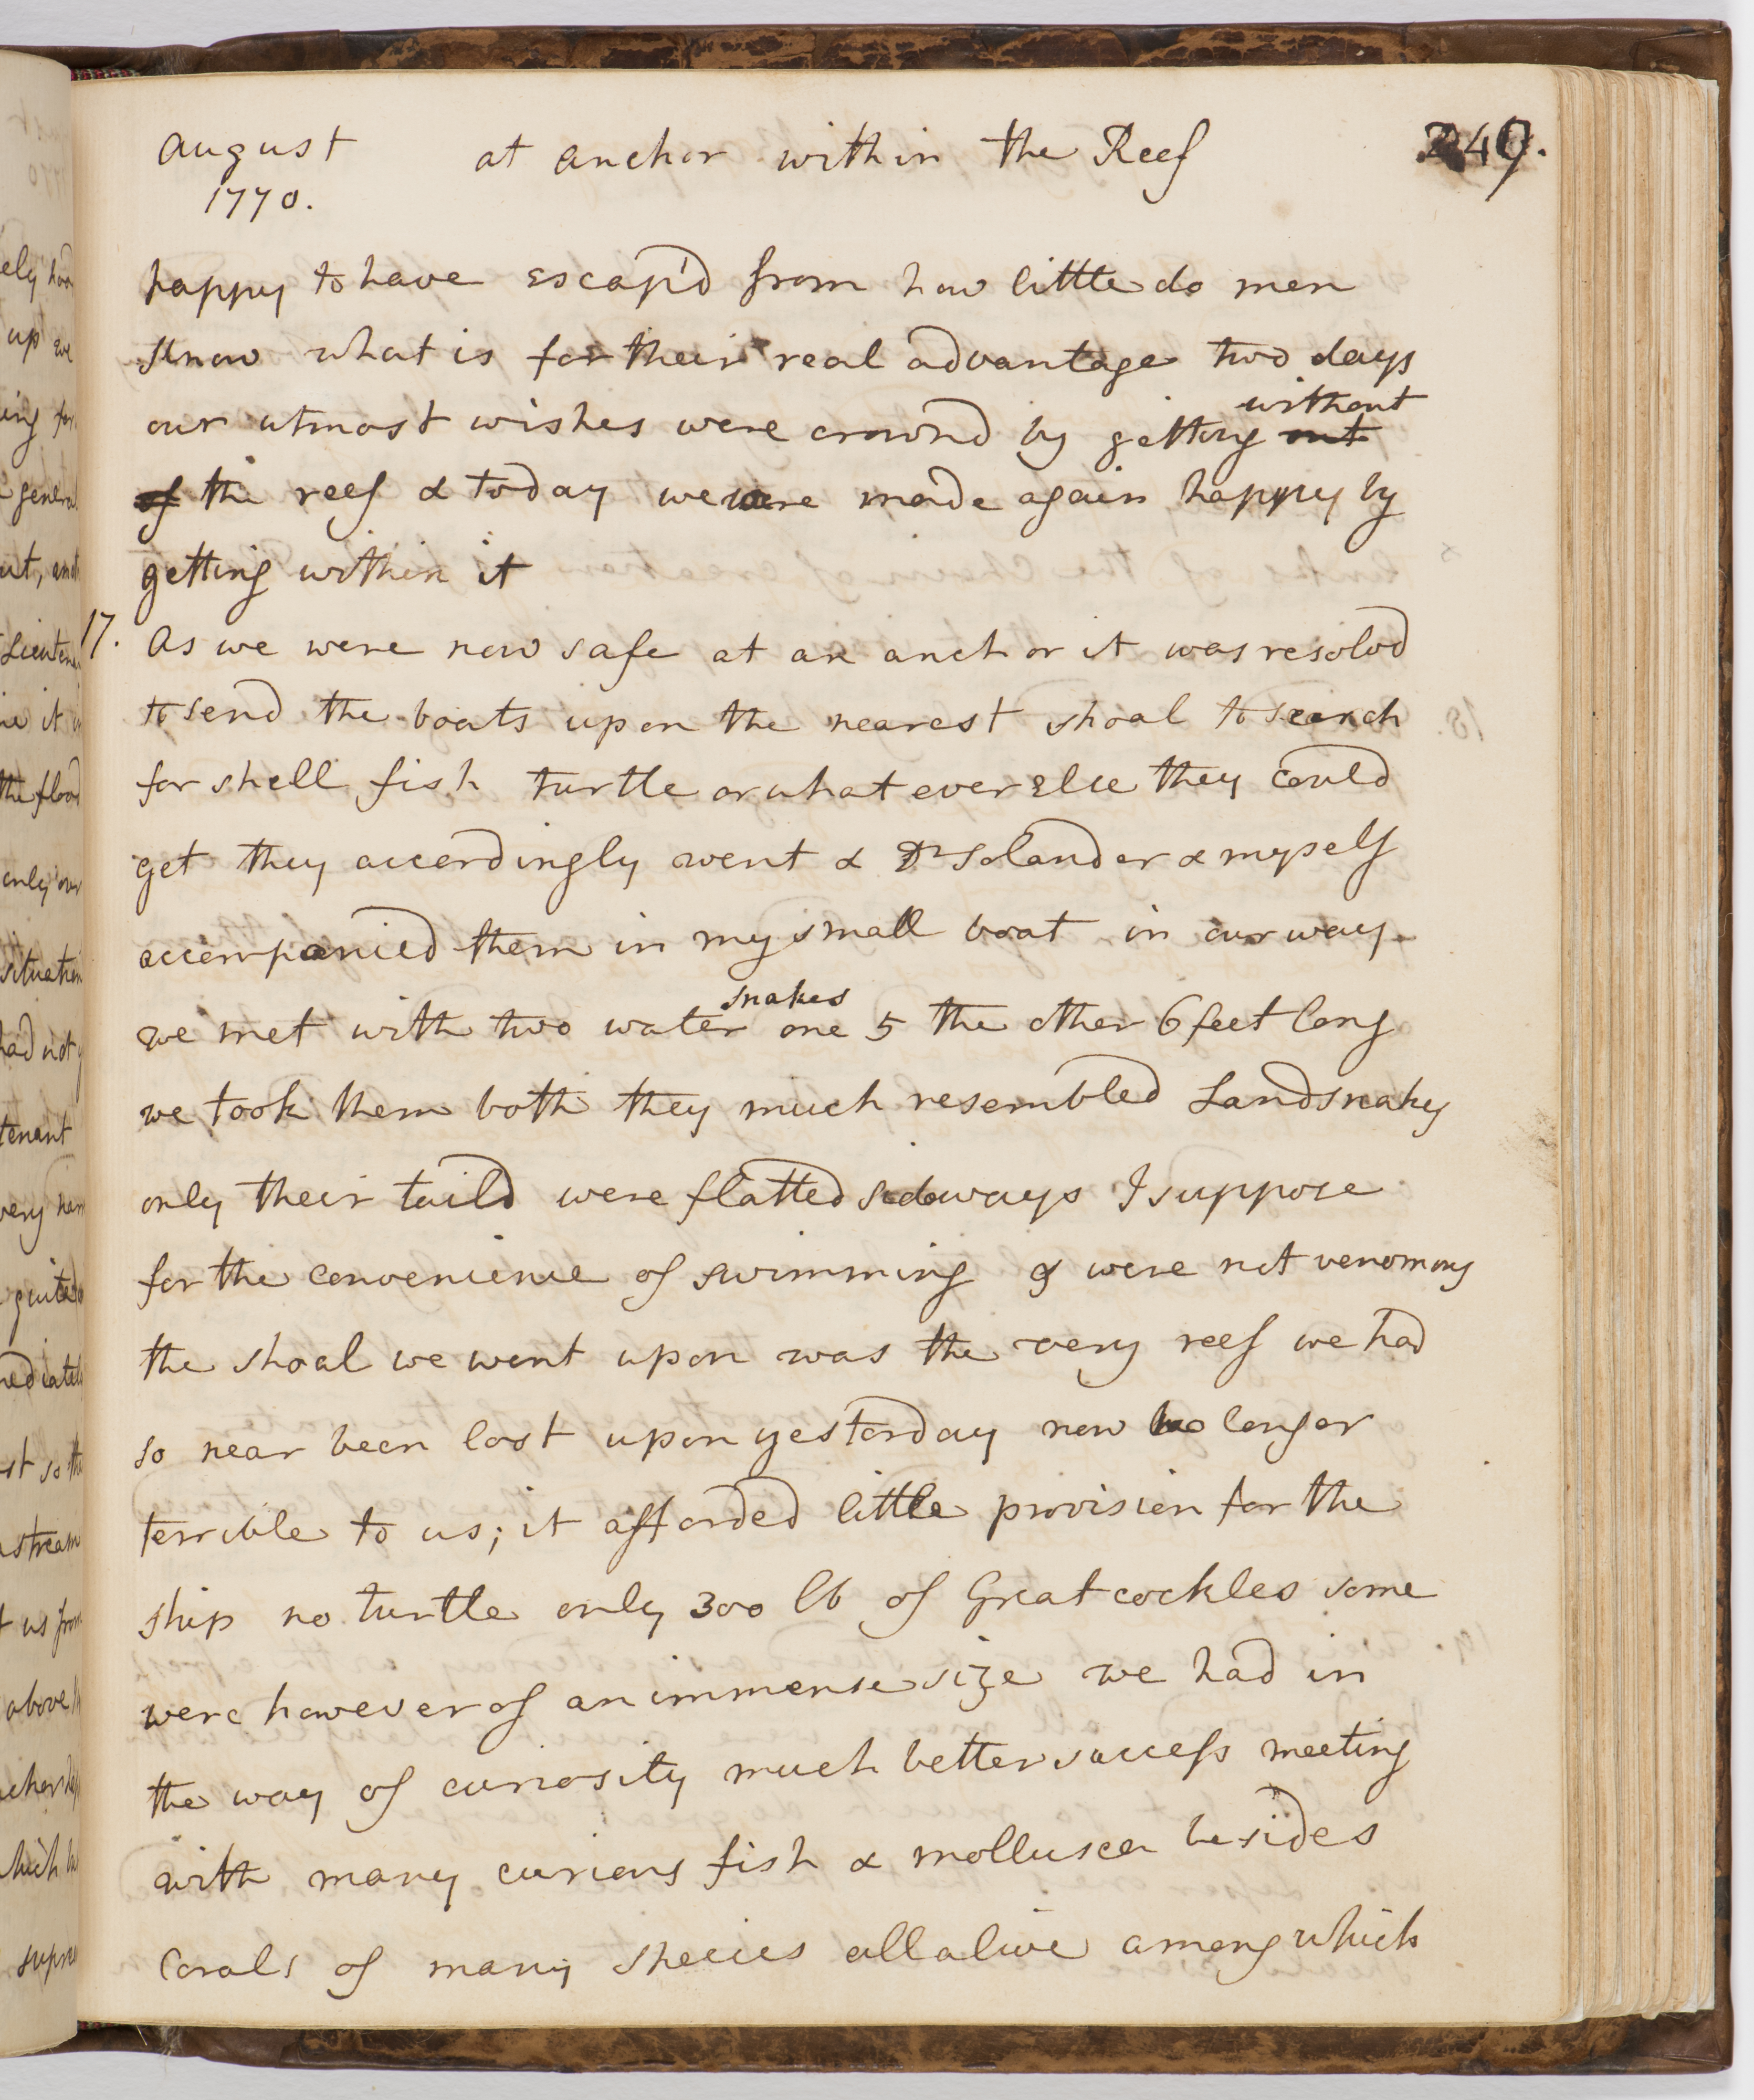 August at anchor within the Reef 249.
1770.
happy to have escap'd from how little do men
know what is for their real advantage two days
our utmost wishes were crownd by getting without out
of the reef & today we were made again happy by
getting within it
17. As we were now safe at an anchor it was resolvd
to send the boats upon the nearest shoal to search
for shell fish turtle or what ever else they could
get they accordingly went & Dr Solander & myself
accompanied them in my small boat in our way
we met with two water snakes one 5 the other 6 feet long
we took them both they much resembled Landsnakes
only their taild were flatted sideways I suppose
for the convenience of swimming & were not venomous
the shoal we went upon was the very reef we had
so near been lost upon yesterday now no longer
terrible to us; it afforded little provision for the
ship no turtle only 300 lb of Great cockles some
were however of an immense size we had in
the way of curiosity much better success meeting
with many curious fish & mollusca besides
Corals of many species all alive among which